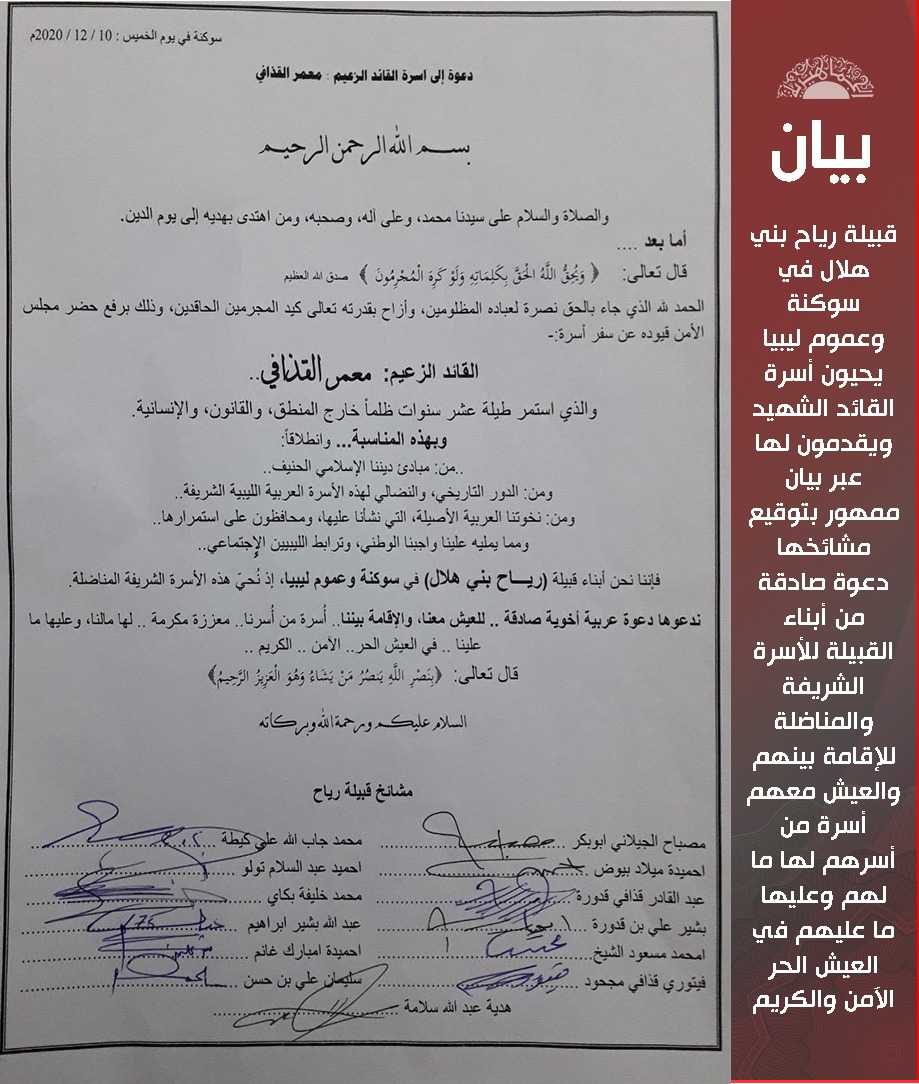 سوكنة في يوم الخميس : 10 / 12 / 2020م
دعوة إلى اسرة القائد الزعيم : معمر القذافي
بسم الله الرحمن الرحيم
والصلاة والسلام على سيدنا محمد، وعلى آله، وصحبه، ومن اهتدى بهديه إلى يوم الدين.
أما بعد ....
قال تعالى: ﴿ وَيُحِقُّ اللَّهُ الْحَقَّ بِكَلِمَاتِهِ وَلَوْ كَرِهَ الْمُجْرِمُونَ ﴾ صدق الله العظيم
الحمد لله الذي جاء بالحق نصرة لعباده المظلومين، وأزاح بقدرته تعالى كيد المجرمين الحاقدين، وذلك برفع حضر مجلس
الأمن قيوده عن سفر أسرة:-
القائد الزعيم: معمر القذافي..
والذي استمر طيلة عشر سنوات ظلماً خارج المنطق، والقانون، والإنسانية.
وبهذه المناسبة... وانطلاقاً:
..من: مبادئ ديننا الإسلامي الحنيف..
ومن: الدور التاريخي، والنضالي لهذه الأسرة العربية الليبية الشريفة..
ومن: نخوتنا العربية الأصيلة، التي نشأنا عليها، ومحافظون على استمرارها..
ومما يمليه علينا واجبنا الوطني، وترابط الليبيين الإجتماعي..
فإننا نحن أبناء قبيلة (رياح بني هلال) في سوكنة وعموم ليبيا، إذ نُحيّ هذه الأسرة الشريفة المناضلة.
ندعوها دعوة عربية أخوية صادقة .. للعيش معنا، والإقامة بيننا.. أسرة من أسرنا.. معززة مكرمة .. لها مالنا، وعليها ما
علينا .. في العيش الحر.. الأمن .. الكريم ..
قال تعالى: ﴿بِنَصْرِ اللَّهِ يَنصُرُ مَنْ يَشَاءُ وَهُوَ الْعَزِيزُ الرَّحِيمُ﴾
السلام عليكم ورحمة الله وبركاته
مشائخ قبيلة رياح
مصباح الجيلاني ابوبكر
محمد جاب الله علي كيطة
احميدة ميلاد بيوض
احميد عبد السلام تولو
عبد القادر قذافي قدورة
محمد خليفة بكاي
بشير علي بن قدورة
عبد الله بشير ابراهيم
امحمد مسعود الشيخ
احميدة امبارك غانم
فيتوري قذافي مجحود
سليمان علي بن حسن
هدية عبد الله سلامة
بيان
قبيلة رياح بني
هلال في
سوكنة
وعموم ليبيا
يحيون أسرة
القائد الشهيد
ويقدمون لها
عبر بيان
ممهور بتوقيع
مشائخها
دعوة صادقة
من أبناء
القبيلة للأسرة
الشريفة
والمناضلة
للإقامة بينهم
والعيش معهم
أسرة من
أسرهم لها ما
لهم وعليها
ما عليهم في
العيش الحر
الآمن والكريم